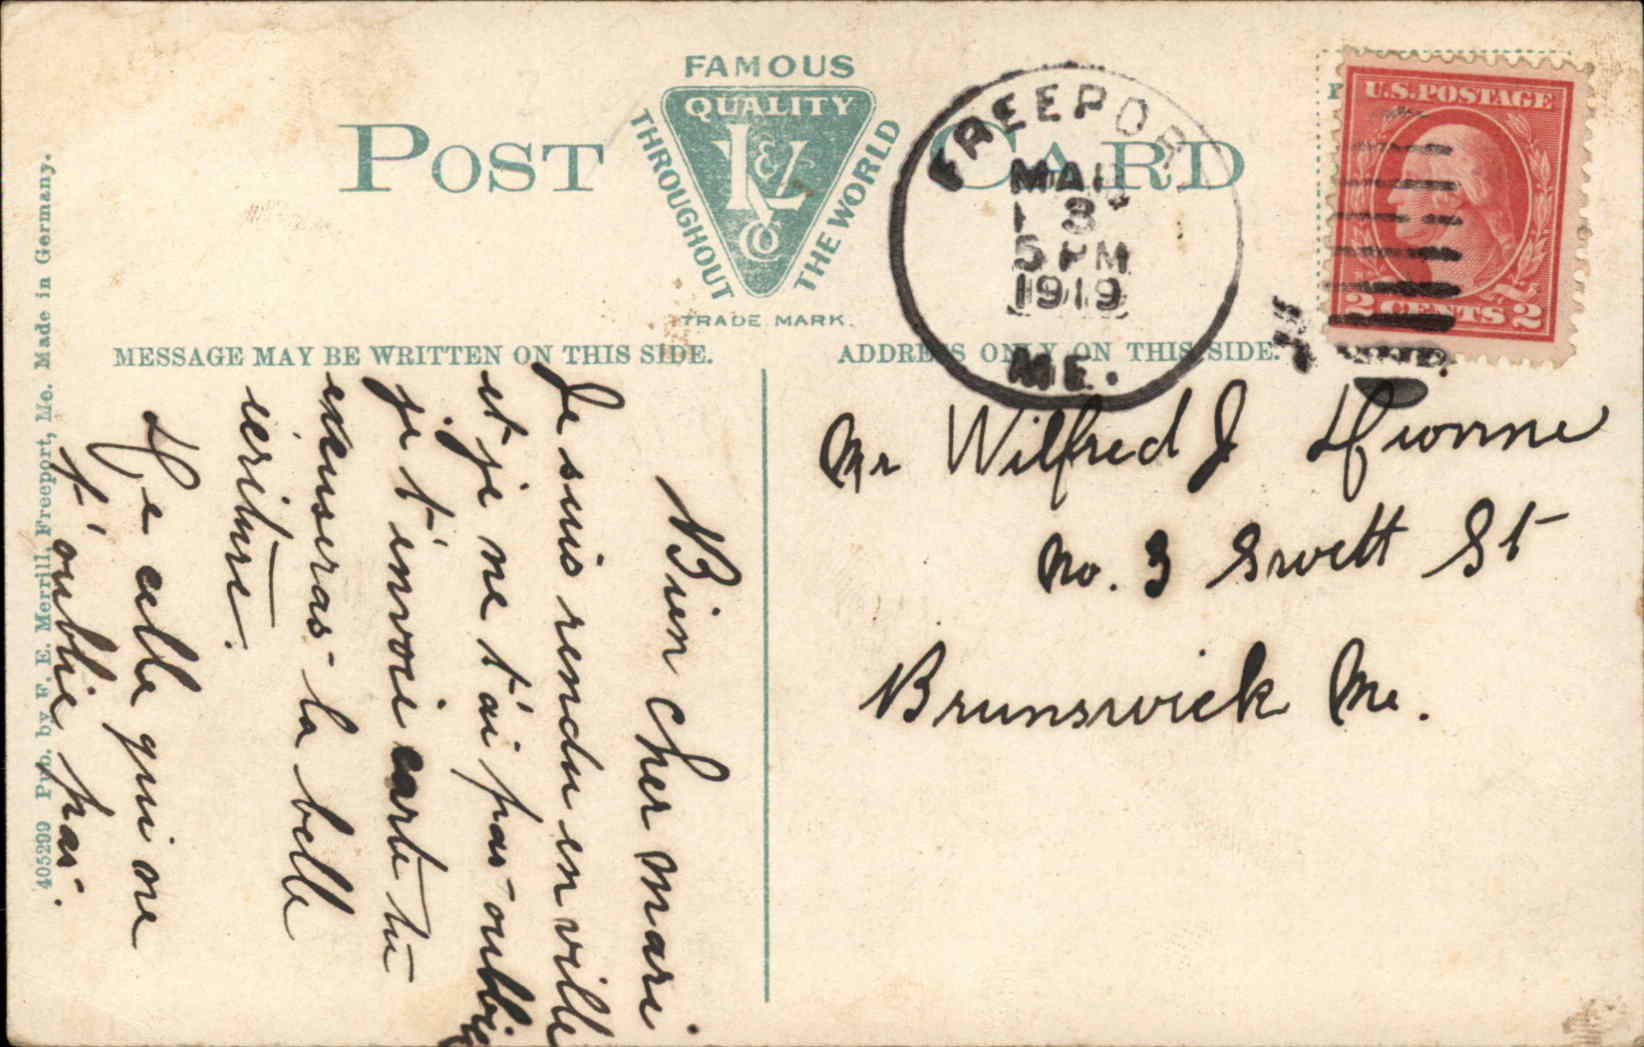 FAMOUS
QUALITY
THROUGHOUT THE WORLD
K & Z
Co
TRADE MARK.
POST CARD
MESSAGE MAY BE WRITTEN ON THIS SIDE.
ADDRESS ONLY ON THIS SIDE.
405299 Pub. by F. E. Merrill, Freeport, Me. Made in Germany.
FREEPORT
MAR
3
5 PM
1919
ME.
U.S. POSTAGE
2 CENTS 2
Bien cher mari
Je suis rendu en ville
et je ne t'ai pas oublié
je t'envoie carte tu
excuseras la belle
ieriture.
De celle qui ne
t'oublie pas.
Mr Wilfred J Dionne
No. 3 Swett St
Brunswick Me.